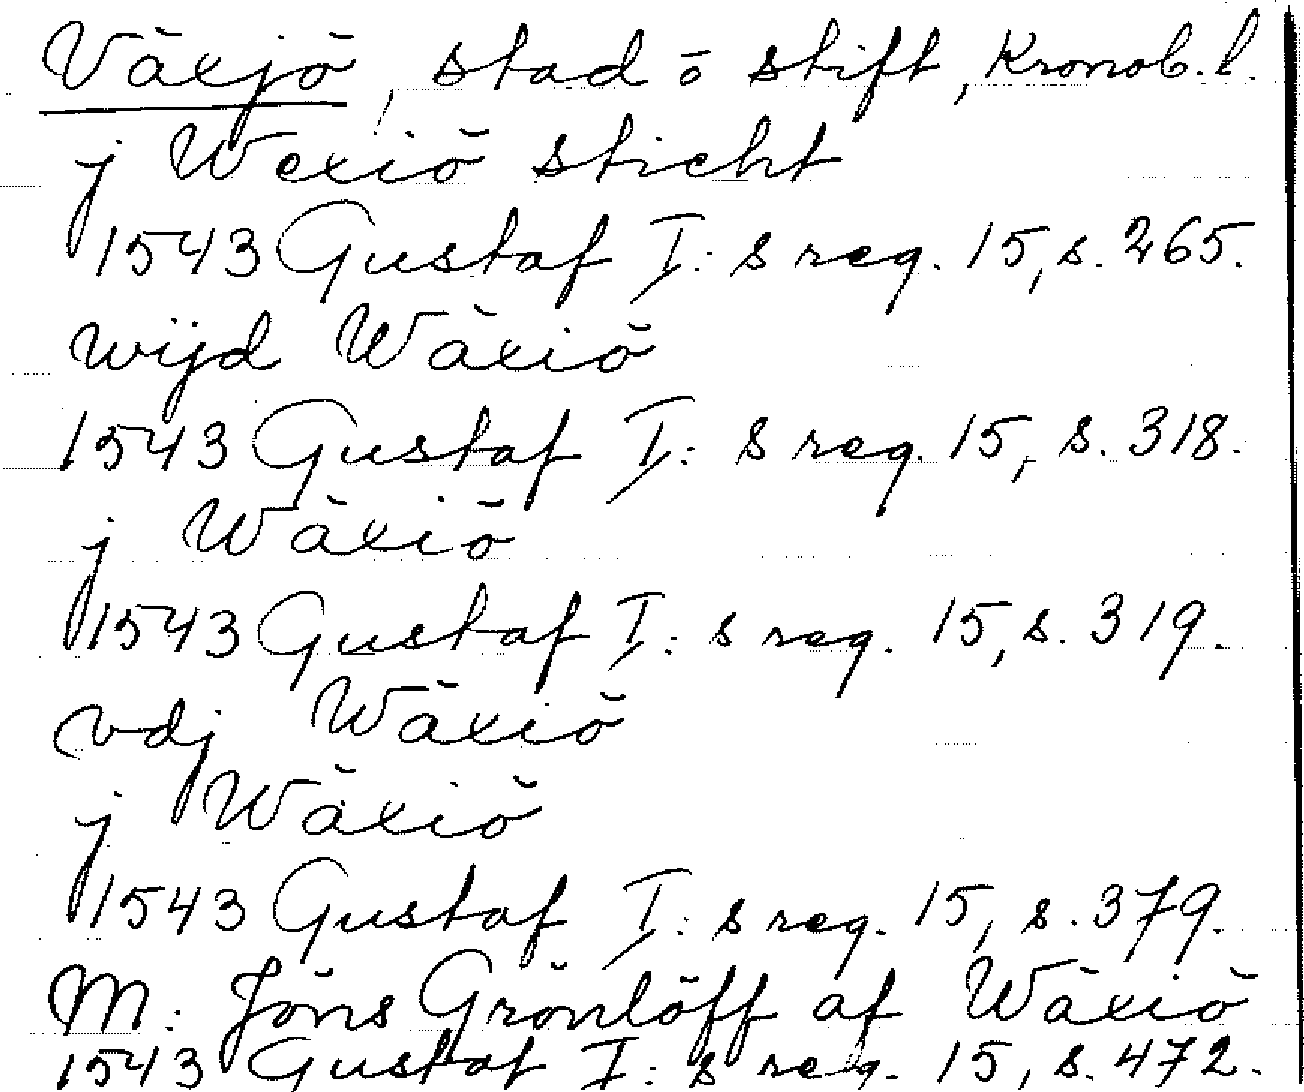 Växjö, stad o stift, Kronob. l.
j Wexiö sticht
1543 Gustaf I: s reg. 15, s. 265.
wijd Wäxiö
1543 Gustaf I: s reg. 15, s. 318.
j Wäxiö
1543 Gustaf I: s reg. 15, s. 319.
vdj Wäxiö
j Wäxiö
1543 Gustaf I: s reg. 15, s. 379.
M: Jöns Grönlöff af Wäxiö
1543 Gustaf I: s reg. 15, s. 472.